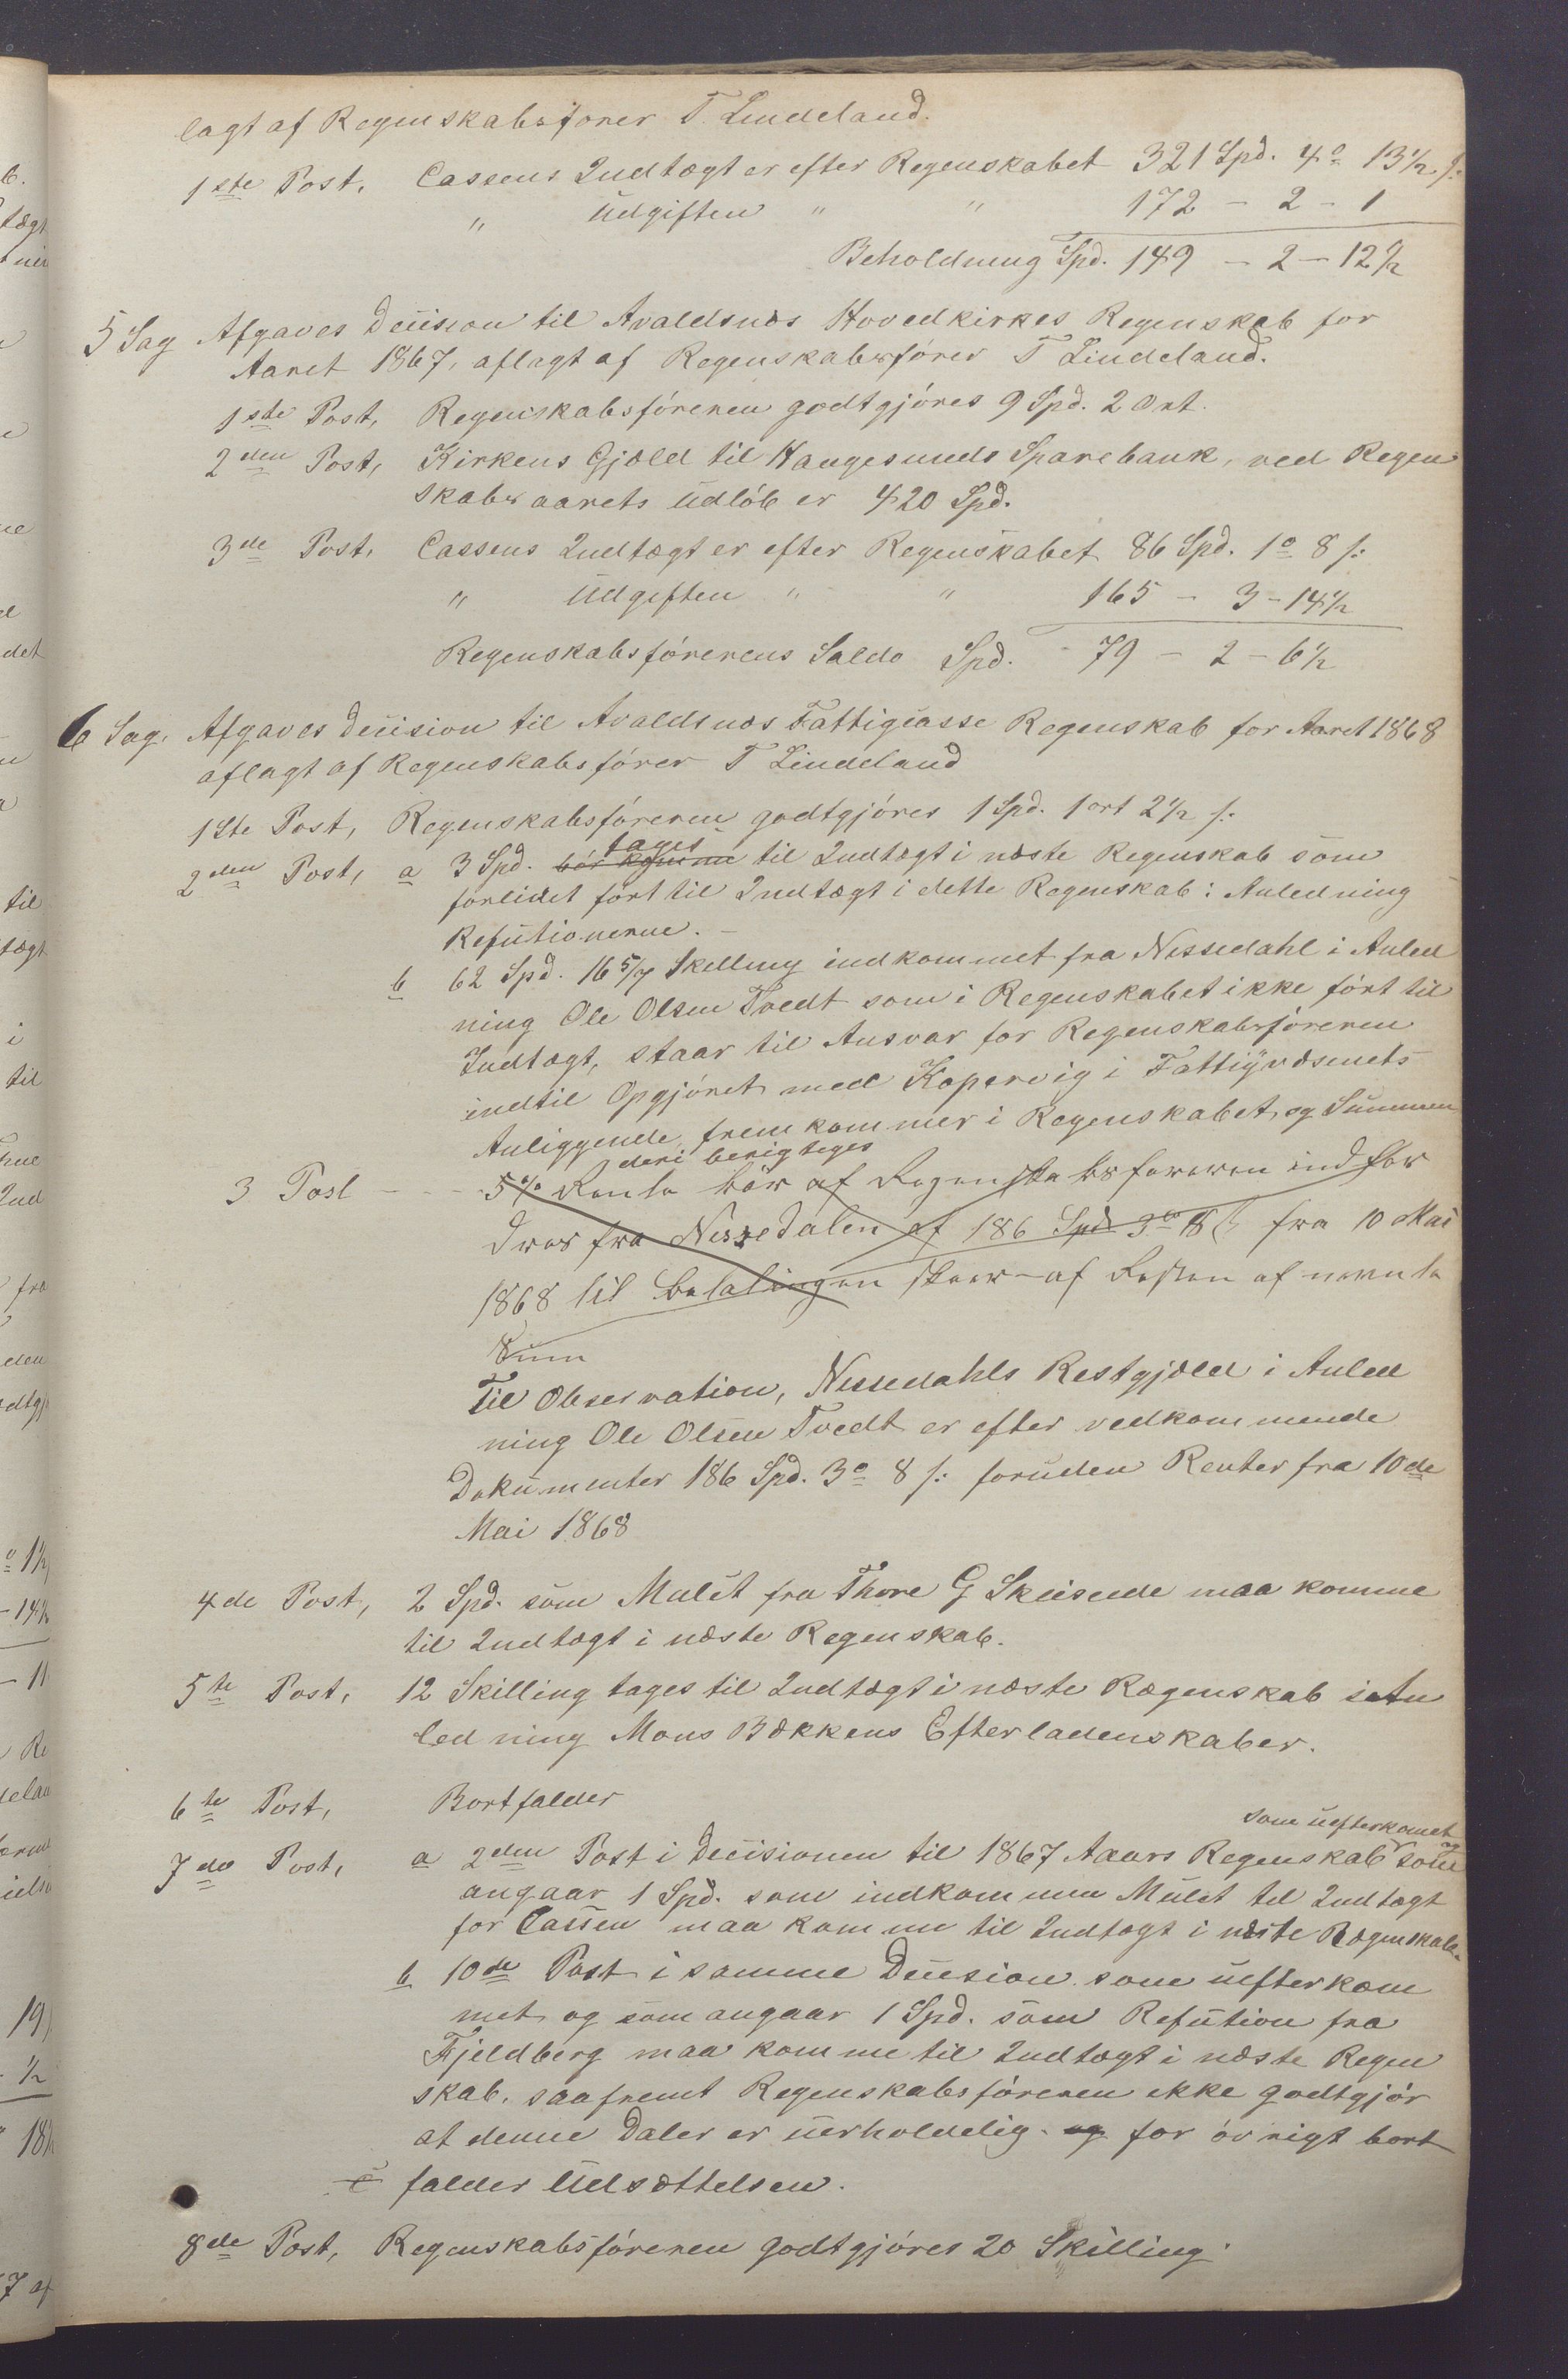 lagt af Regenskabsfører T. Lindeland.
1ste Post, Cassens Indtægt er efter Regenskabet 321 Spd. 4o 13½ s:
" Udgiften " " 172 - 2 - 1
Beholdning Spd. 149 - 2 - 12½
5 Sag Afgaves Decision til Avaldsnæs Hovedkirkes Regenskab for
Aaret 1867, aflagt af Regenskabsfører T Lindeland.
1ste Post, Regenskabsføreren godtgjøres 9 Spd. 2 Ort.
2den Post, Kirkens Gjæld til Haugesunds Sparebank, ved Regen
skabsaarets Udløb er 420 Spd.
3de Post, Cassens Indtægt er efter Regenskabet 86 Spd. 1o 8 s:
" Udgiften " " 165 - 3 - 14½
Regenskabsførerens Saldo Spd. 79 - 2 - 6½
6 Sag, Afgaves Decision til Avaldsnæs Fattigcasse Regenskab for Aaret 1868
aflagt af Regenskabsfører T Lindeland
1Ste Post, Regenskabsføreren godtgjøres 1 Spd. 1 ort 2½ s:
tages
2den Post, a 3 Spd. bør komme til Indtægt i næste Regenskab som
forlidet ført til Indtægt i dette Regenskab: Anledning
Refutionerne. -
b 62 Spd. 16 5/7 Skilling indkommet fra Nissedahl i Anled
ning Ole Olsen Tvedt som i Regenskabet ikke ført til
Indtægt, staar til Ansvar for Regenskabsføreren
indtil Opgjøret med Kopervig i Fattigvæsnets
Anliggende, fremkommer i Regenskabet, og Summen
deri berigtiges
3 Post - - - 5% Rente bør af Regenskabsføreren indfor
dres fra Nissedalen af 186 Spd 3o 8 s fra 10 Mai
1868 til Betalingen skeer af Resten af nævnte
Sum
Til Observation, Nissedahls Restgjæld i Anled
ning Ole Olsen Tvedt er efter vedkommende
Dokumenter 186 Spd. 3o 8 s: foruden Renter fra 10de
Mai 1868
4de Post, 2 Spd. som Mulct fra Thore G Skeisende maa komme
til Indtægt i næste Regenskab.
5te Post, 12 Skilling tages til Indtægt i næste Regenskab i An
ledning Mons Bækkens Efterladenskaber.
6te Post, Bortfalder
som uefterkomet
7de Post, a 2den Post i Decisionen til 1867 Aaars Regenskab og som
angaar 1 Spd. som indkommen Mulct til Indtægt
for Cassen maa komme til Indtægt i næste Regenskab.
b 10de Post i samme Decision som uefterkom
met og som angaar 1 Spd. som Refution fra
Fjeldberg maa komme til Indtægt i næste Regen
skab, saafremt Regenskabsføreren ikke godtgjør
at denne Daler er uerholdelig. og for øvrigt bort
c falder Udsættelsen.
8de Post, Regenskabsføreren godtgjøres 20 Skilling.